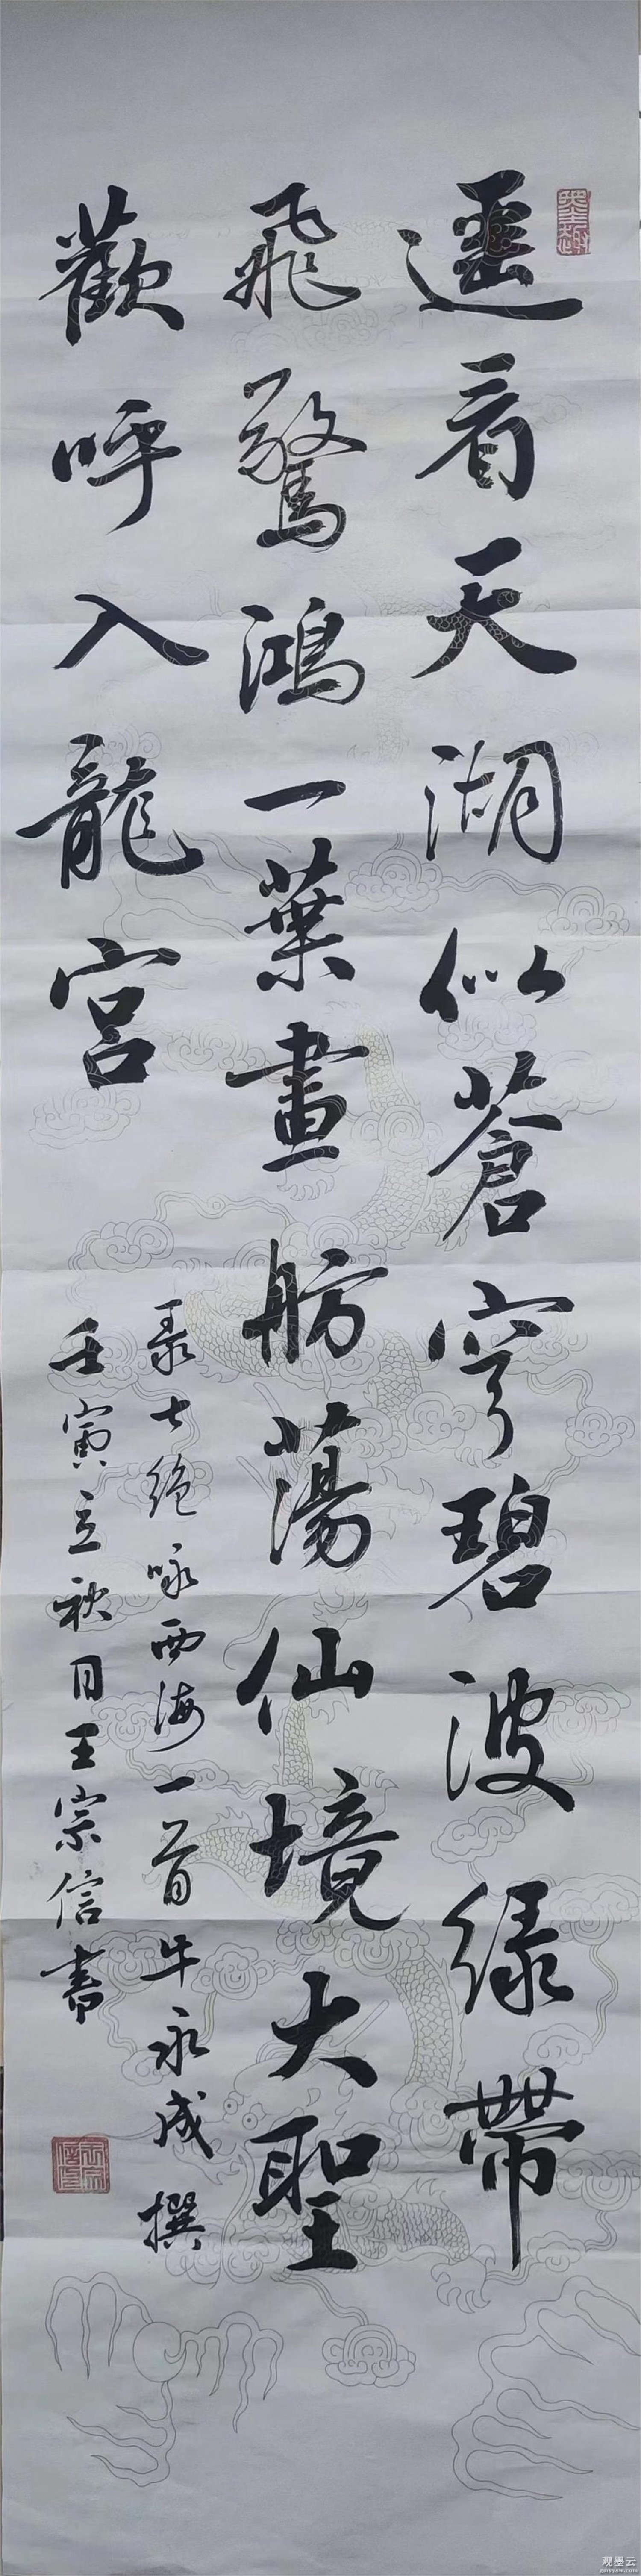 遥看天湖似蒼穹碧波緑帶
飛驚鴻一葉畫舫蕩仙境大聖
歡呼入龍宮
录七絶咏西海一首牛永成撰
壬寅立秋日王宗信書
墨趣
观墨云